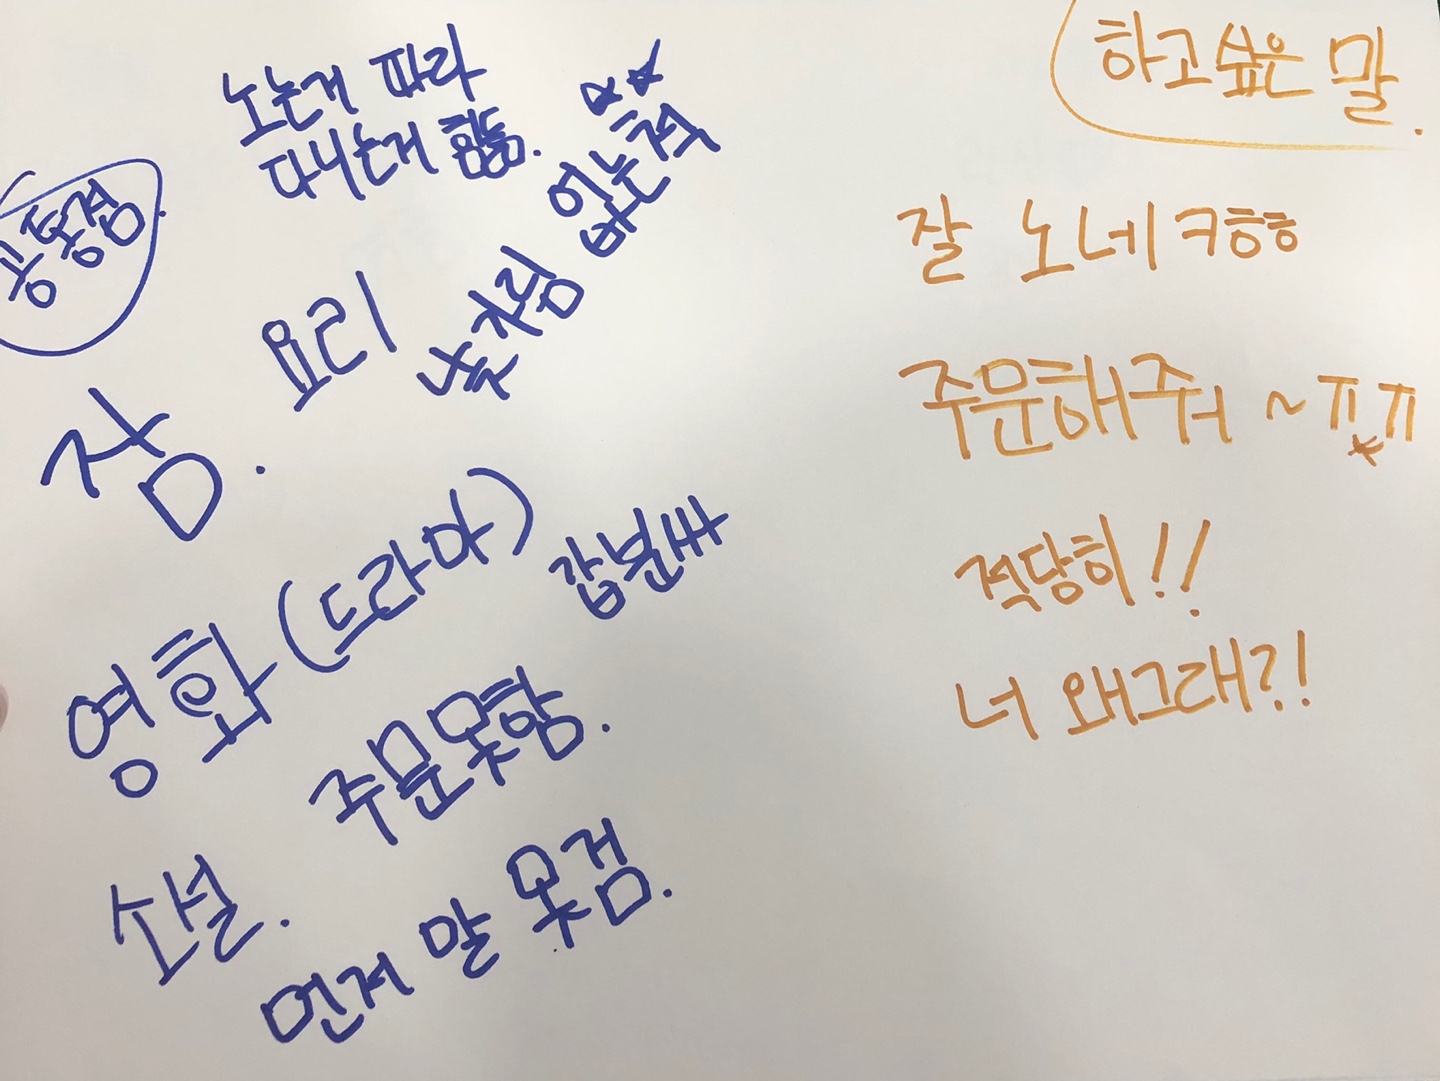 공통점.
노는게 따라
다니는게 힘듦.
요리
낯가림 없는척
잠.
영화(드라마)
갑분싸
주문못함.
소설.
먼저 말 못검.
하고싶은 말.
잘 노네ㅋㅎㅎ
주문해줘~ㅠㅠ
적당히!!
너 왜그래?!